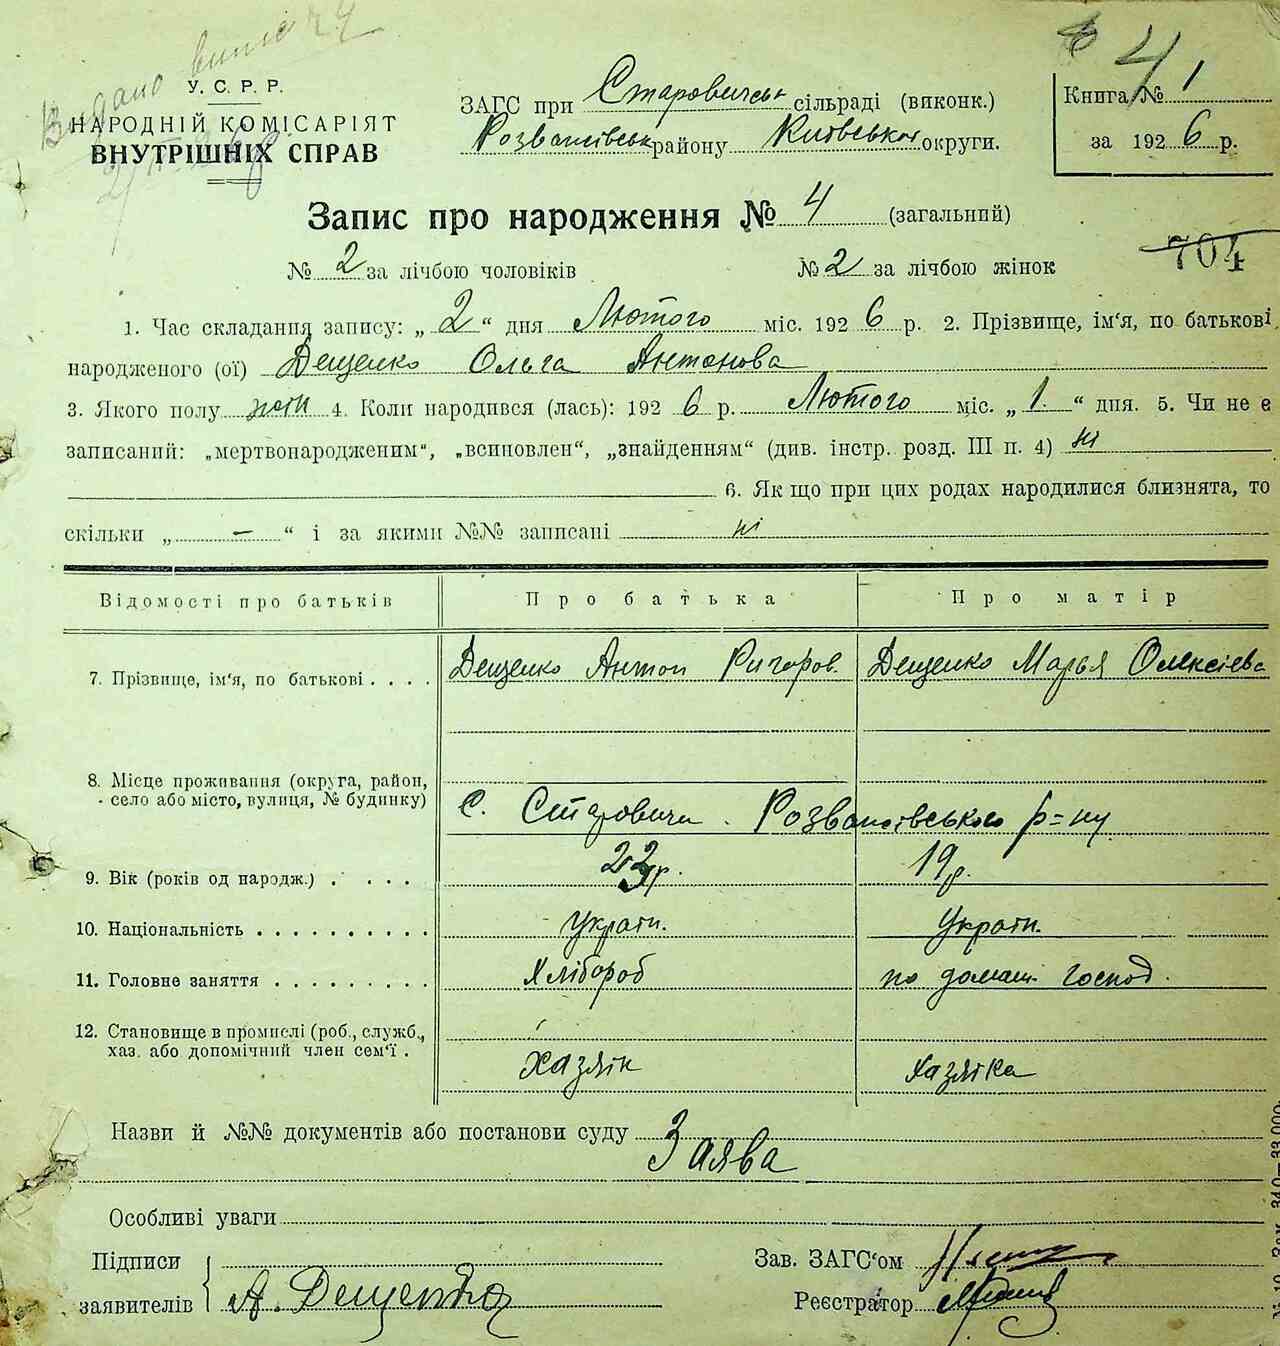 Видано
У. С. Р. Р.
НАРОДНІЙ КОМІСАРІЯТ
ВНУТРІШНІХ СПРАВ
ЗАГС при Старовичськ сільраді (виконк.)
Розважівськ району Київської округи.
4
Книга № 1
за 1926 р.
Запис про народження № 4 (загальний)
704
№ 2 за лічбою чоловіків № 2 за лічбою жінок
1. Час складання запису: „2“ дня Лютого міс. 1926 р. 2. Прізвище, ім'я, по батькові
народженого (ої) Дещенко Ольга Антонова
3. Якого полу жін 4. Коли народився (лась): 1926 р. Лютого міс. „1.“ дня. 5. Чи не є
записаний: „мертвонародженим“, „всиновлен“, „знайденням“ (див. інстр. розд. III п. 4) ні
6. Як що при цих родах народилися близнята, то
скільки „ — “ і за якими №№ записані ні
Відомості про батьків Про батька Про матір
7. Прізвище, ім'я, по батькові . . . . Дещенко Антон Ригоров. Дещенко Марья Олексієва
8. Місце проживання (округа, район,
село або місто, вулиця, № будинку) С. Старовичи. Розважівського р=ну
9. Вік (років од народж.) . . . . . 23р. 19р.
10. Національність . . . . . . . . . . Украін. Украін.
11. Головне заняття . . . . . . . . . Хлібороб по домаш. господ.
12. Становище в промислі (роб., служб.,
хаз. або допомічний член сем'ї . Хазяін Хазяіка
Назви й №№ документів або постанови суду Заява
Особливі уваги
Підписи Зав. ЗАГС'ом
заявителів А. Дещенко Реєстратор